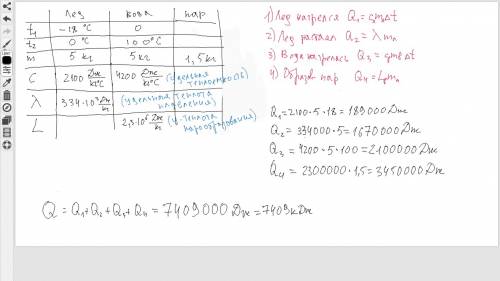 лед вода пар
t₁ -18 °C 0
t₂ 0 °C 100°C
m 5 кг 5 кг 1,5 кг
C 2100 Дж/кг°C 4200 Дж/кг°C (удельная теплоемкость)
λ 334·10³ Дж/кг (удельная теплота плавления)
L 2,3·10⁶ Дж/кг (у. теплота парообразования)
1) Лед нагрелся Q₁=cmΔt
2) Лед растаял Q₂=λmл
3) Вода нагрелась Q₃=cmвΔt
4) Образов. пар Q₄=Lmп
Q₁=2100·5·18=189000Дж
Q₂=334000·5=1670000Дж
Q₃=4200·5·100=2100000Дж
Q₄=2300000·1,5=3450000Дж
Q=Q₁+Q₂+Q₃+Q₄=7409000Дж=7409кДж